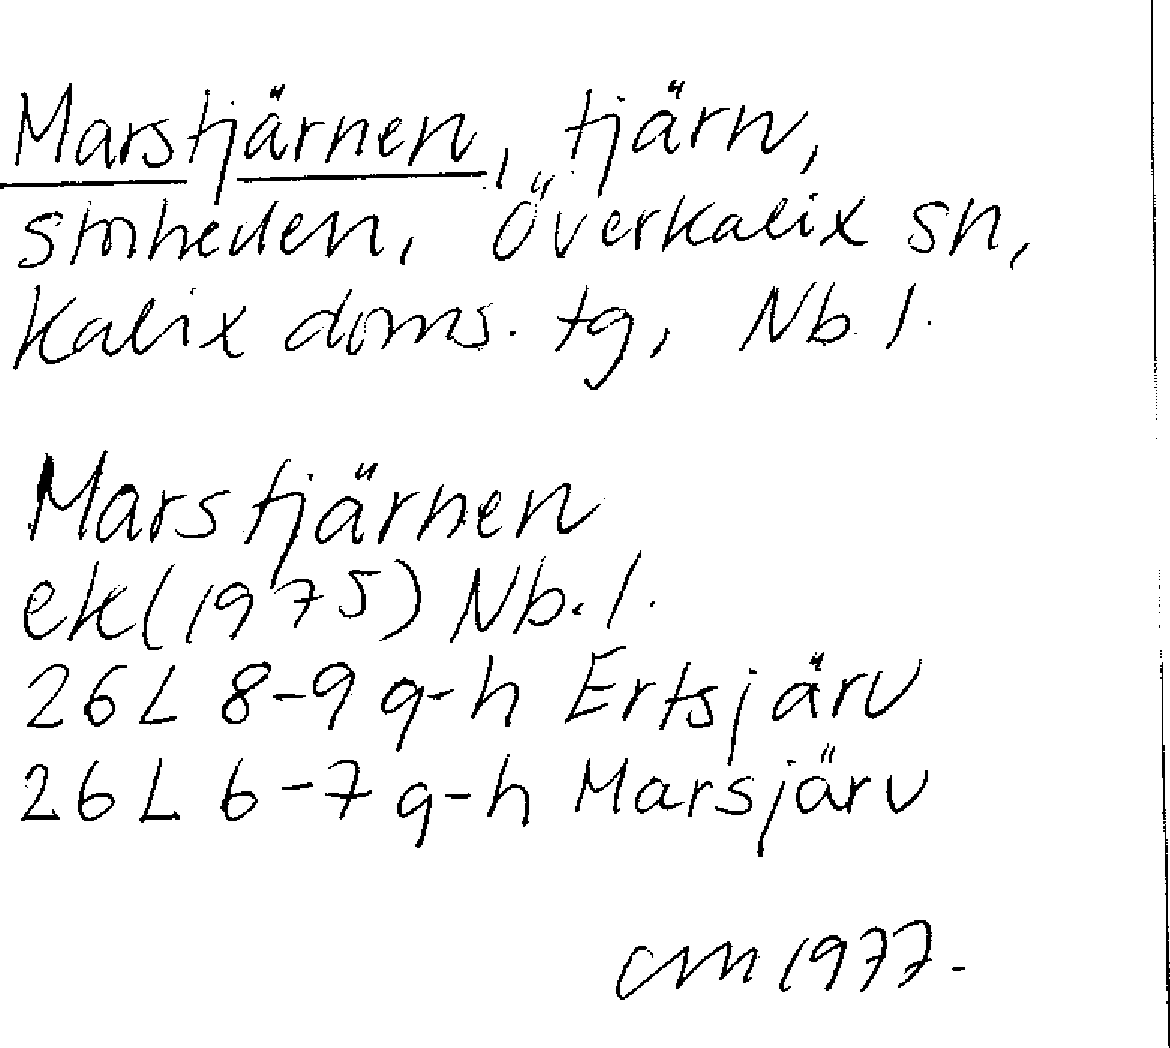 Marstjärnen, tjärn,
Överkalix sn,
Kalix doms. tg, Nb l.
Marstjärnen
ek (1975) Nb. l.
26L 8-9 g-h Ertsjärv
26L 6-7 g-h Marsjärv
CM 1977.